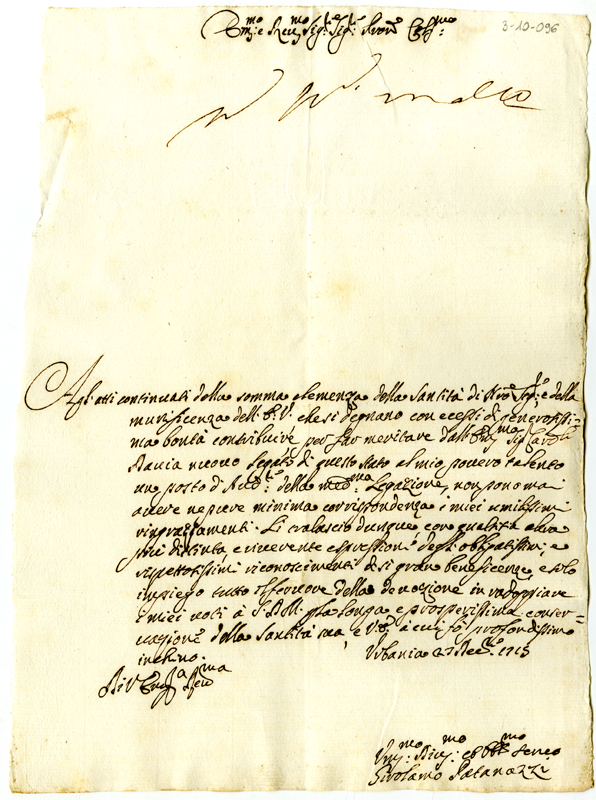 3-10-096
Em:mo e Rev:mo Sig:re Sig:re Pron:e Col:mo
Agl'atti continuati della somma clemenza della Santità di Nro Sig:re e della
munificenza dell'E.V. che si degnano con eccessi di generosissi=
ma bontà contribuire per far meritare dall'Em:mo Sig Card:le
Davia nuovo Legato di questo stato al mio povero talento
un posto d'Aud:re della med:ma Legazione, non pono mai
avere ne pure minima corrispondenza i miei umilissimi
ringraziamenti. Li tralascio dunque con qualsisia altra
più distinta e riverente espressione degli obligatissimi, e
rispettosissimi riconoscimenti di si gran beneficenze, e solo
impiego tutto il fervore della devozione in radoppiare
i miei voti à S.D.M. p la longa e prosperissima conser=
vazione della Santità sua e V.E. à cui fò profondissimo
inchino. Urbania 27 1715
Di V Em:za Rev:ma
Um:mo Div:mo ed Obb:mo Serv:e
Girolamo Patanazzi